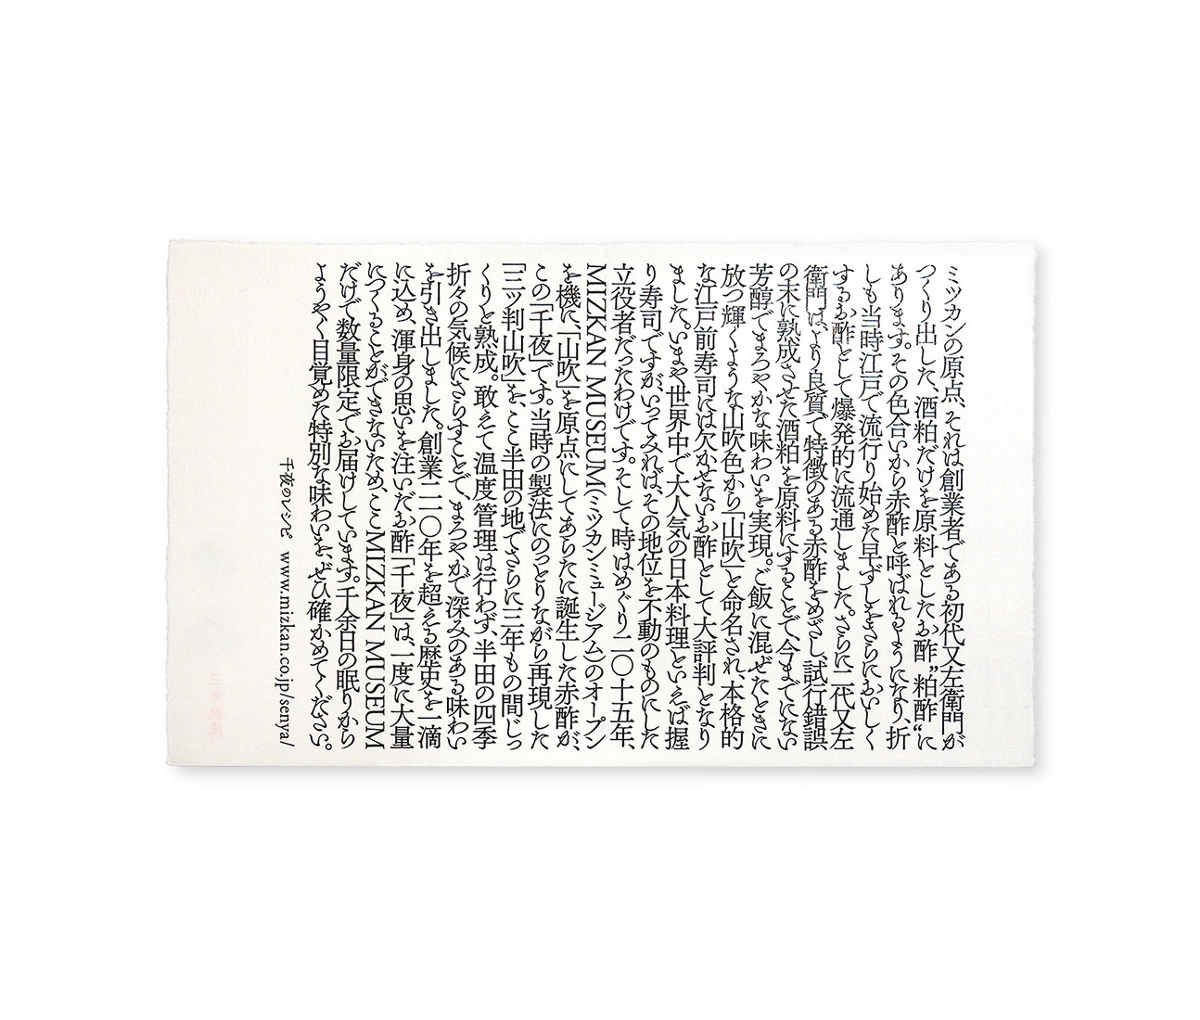 ミツカンの原点、それは創業者である初代又左衛門が
つくり出した、酒粕だけを原料としたお酢〝粕酢〟に
あります。その色合いから赤酢と呼ばれるようになり、折
しも当時江戸で流行り始めた早ずしをさらにおいしく
するお酢として爆発的に流通しました。さらに二代又左
衛門は、より良質で特徴のある赤酢をめざし、試行錯誤
の末に熟成させた酒粕を原料にすることで、今までにない
芳醇でまろやかな味わいを実現。ご飯に混ぜたときに
放つ輝くような山吹色から「山吹」と命名され、本格的
な江戸前寿司には欠かせないお酢として大評判となり
ました。いまや世界中で大人気の日本料理といえば握
り寿司ですが、いってみれば、その地位を不動のものにした
立役者だったわけです。そして時はめぐり二〇十五年、
MIZKAN MUSEUM(ミツカンミュージアム)のオープン
を機に、「山吹」を原点にしてあらたに誕生した赤酢が、
この「千夜」です。当時の製法にのっとりながら再現した
「三ッ判山吹」を、ここ半田の地でさらに三年もの間じっ
くりと熟成。敢えて温度管理は行わず、半田の四季
折々の気候にさらすことで、まろやかで深みのある味わい
を引き出しました。創業二一〇年を超える歴史を一滴
に込め、渾身の思いを注いだお酢「千夜」は、一度に大量
につくることができないため、ここMIZKAN MUSEUM
だけで数量限定でお届けしています。千余日の眠りから
ようやく目覚めた特別な味わいを、ぜひ確かめてください。
千夜のレシピ www.mizkan.co.jp/senya/